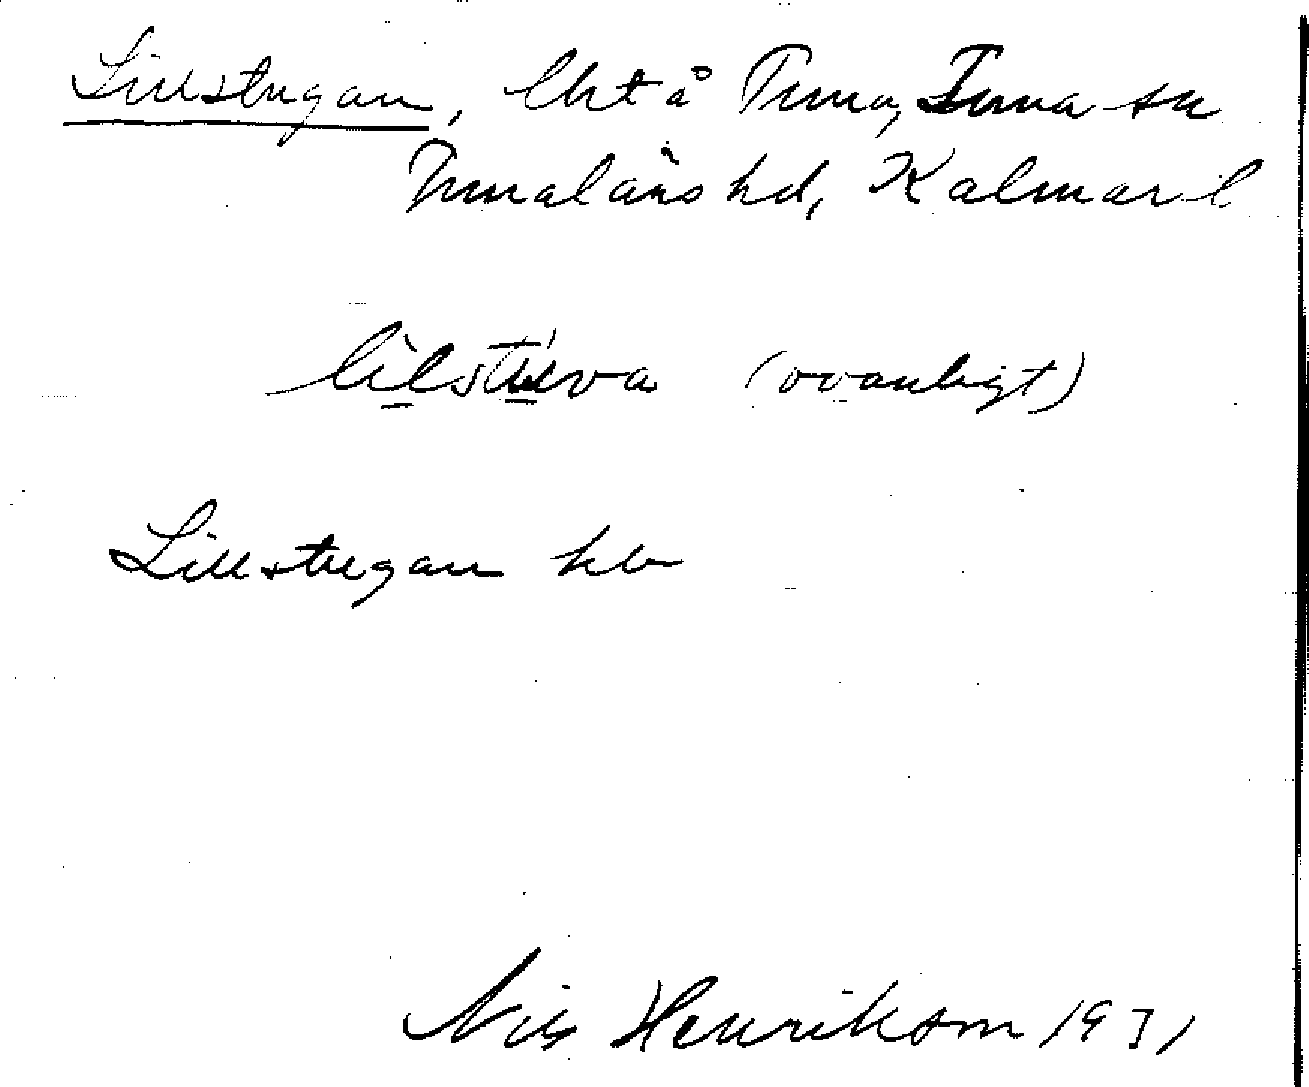 Lillstugan, lht å Tuna, Tuna sn
Tunaläns hd, Kalmar l
lilstuva (ovanligt)
Lillstugan hb
Nils Henrikson 1931